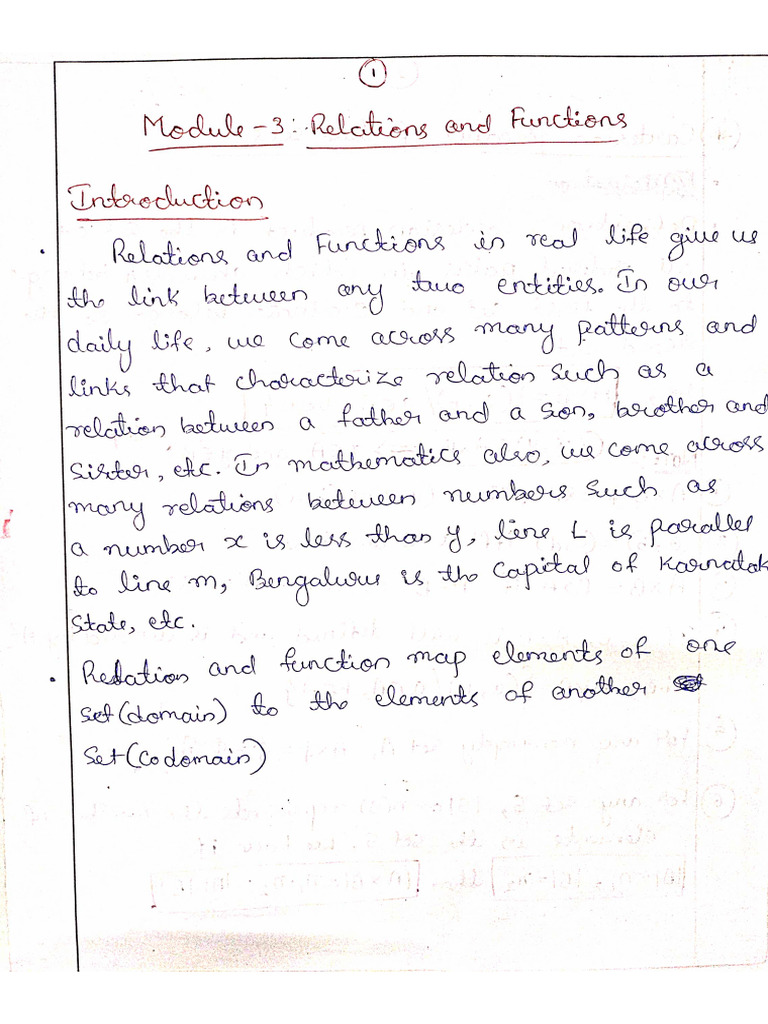 1
Module - 3 : Relations and Functions
Introduction
. Relations and Functions in real life give us
the link between any two entities. In our
daily life, we come across many patterns and
links that characterize relation such as a
relation between a father and a son, brother and
sister, etc. In mathematics also, we come across
many relations between numbers such as
a number x is less than y, line L is parallel
to line m, Bengaluru is the capital of Karnatak
State, etc.
. Relation and function map elements of one
set (domain) to the elements of another
set (codomain)